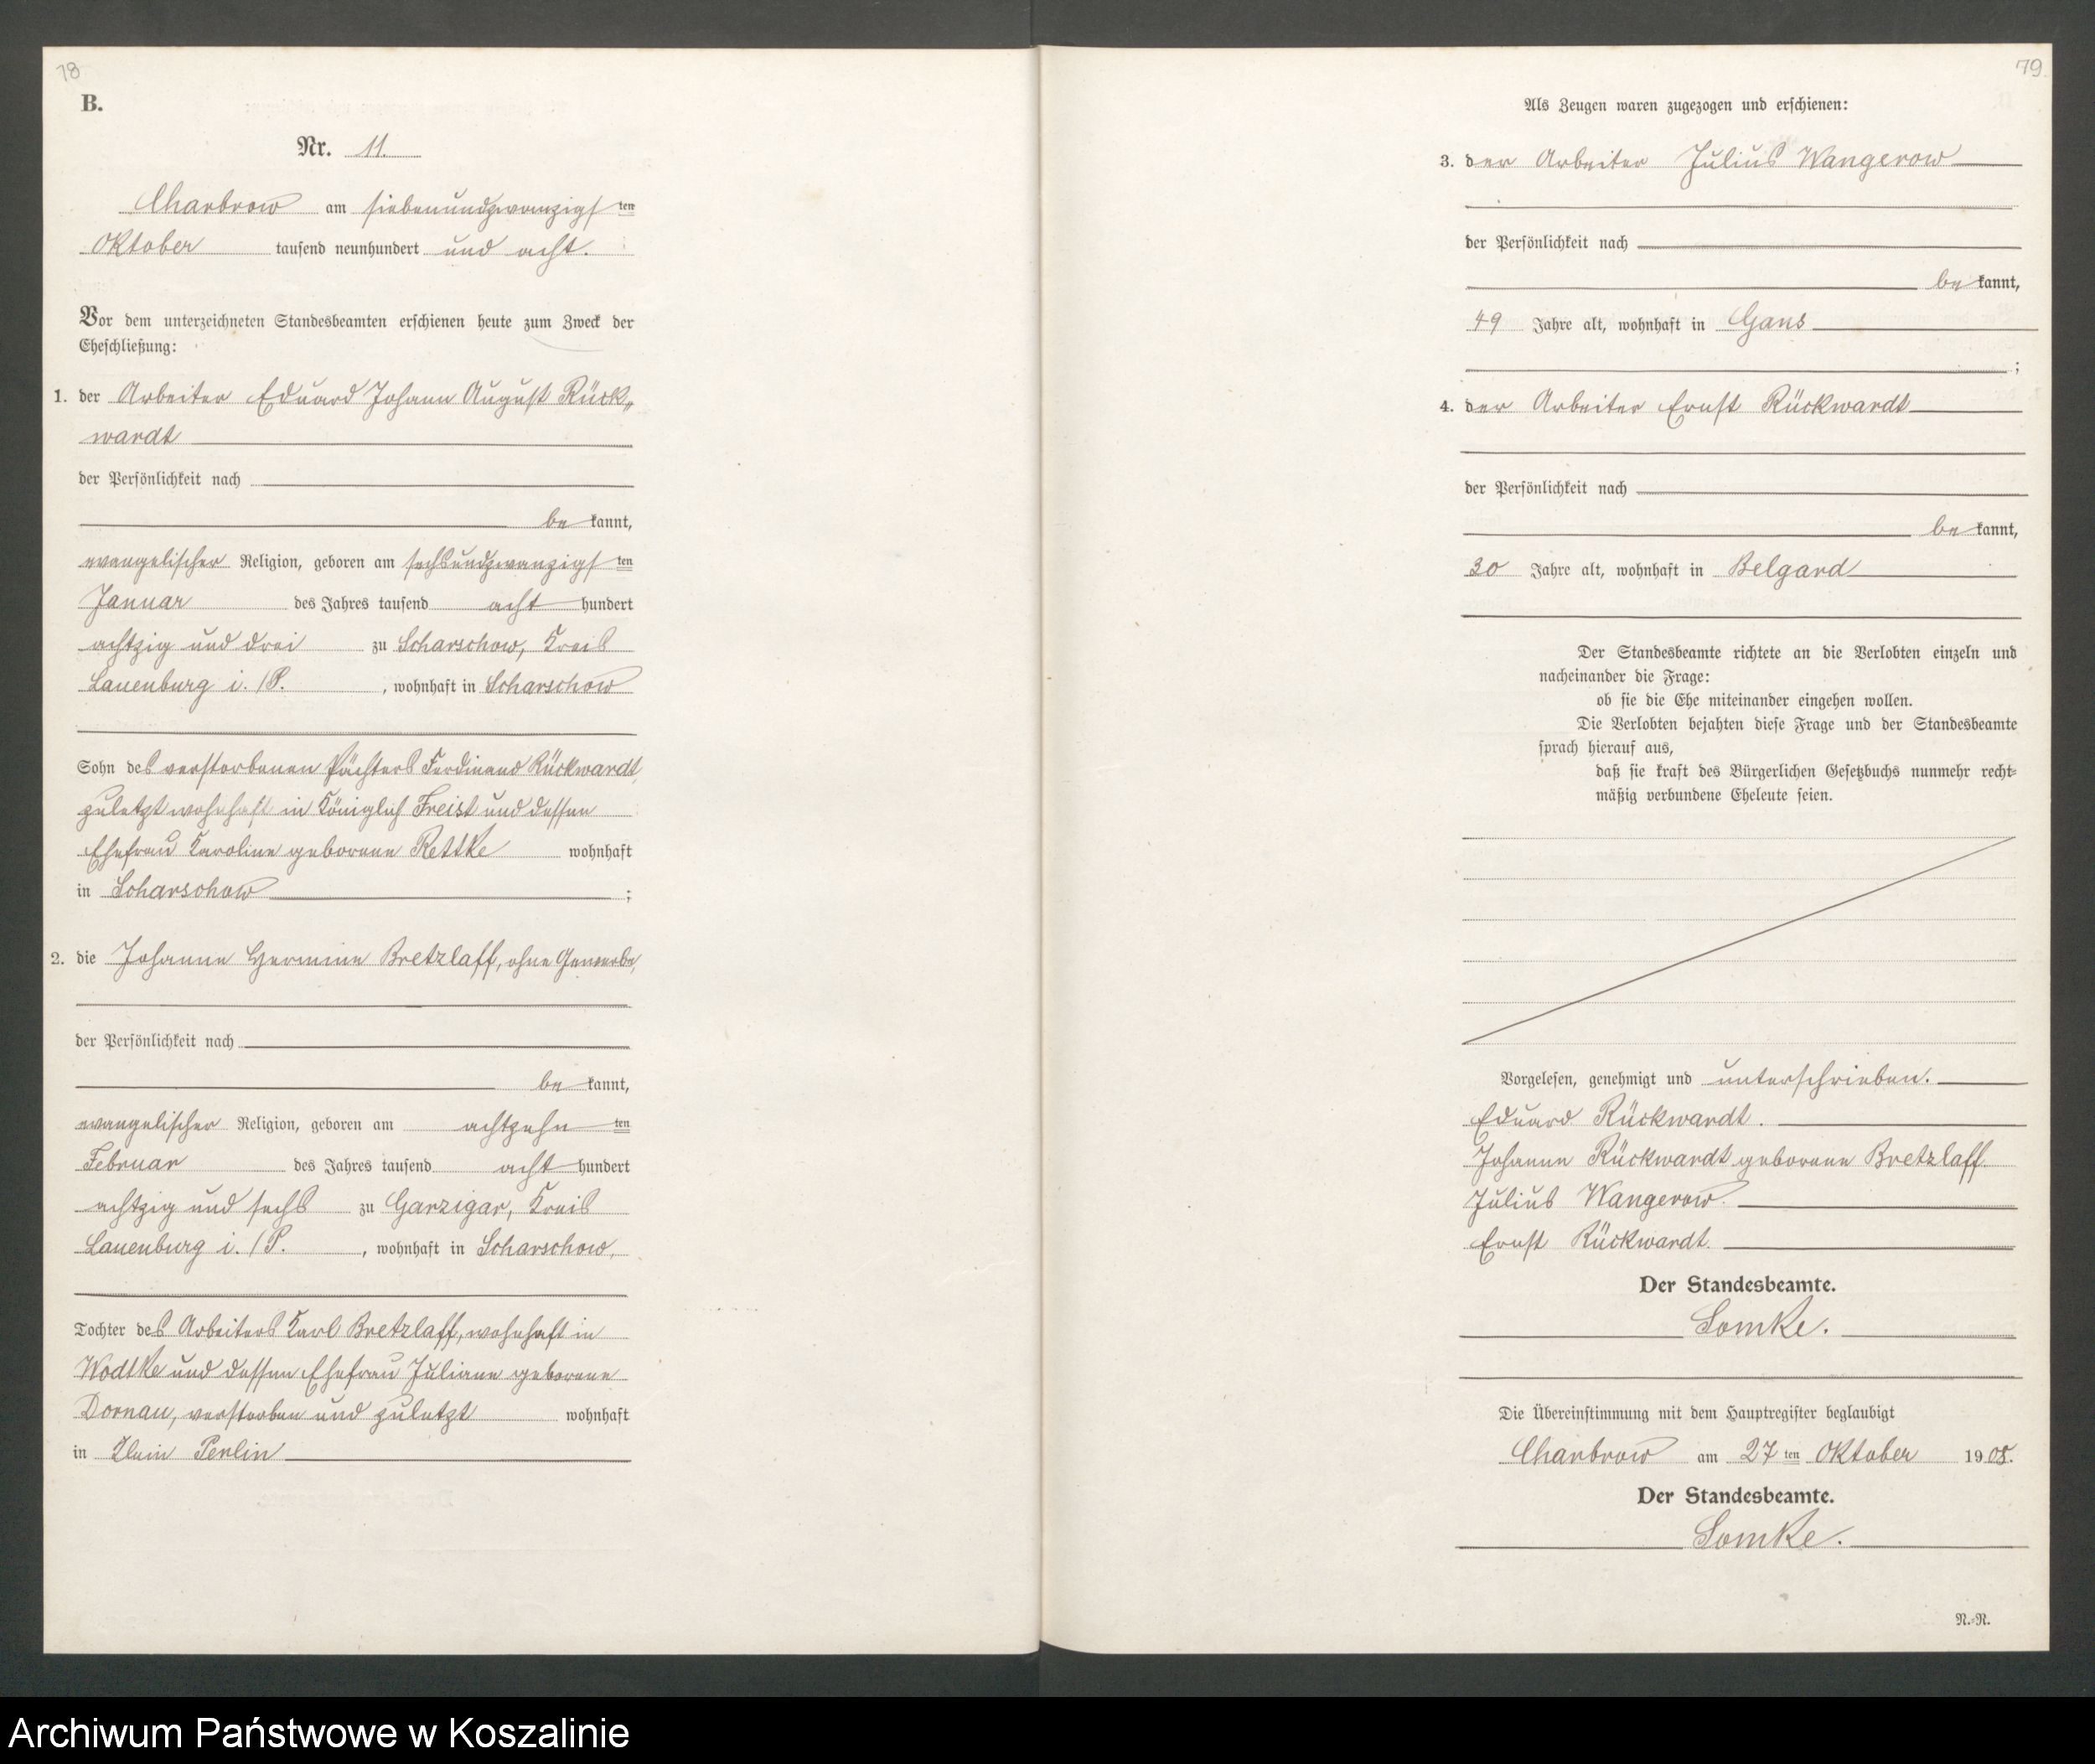 18
B.
Nr. 11.
Charbrow am siebenundzwanzigsten
Oktober tausend neunhundert und acht.
Vor dem unterzeichneten Standesbeamten erschienen heute zum Zweck der
Eheschließung:
1. der Arbeiter Eduard Johann August Rück„
wardt
der Persönlichkeit nach
be kannt,
evangelischer Religion, geboren am sechsundzwanzigsten
Januar des Jahres tausend acht hundert
achtzig und drei zu Scharschow, Kreis
Lauenburg i./P. , wohnhaft in Scharschow
Sohn des verstorbenen Pächters Ferdinand Rückwardt,
zuletzt wohnhaft in Königlich Freist und dessen
Ehefrau Karoline geborene Rettke wohnhaft
in Scharschow ;
2. die Johanne Hermine Bretzlaff, ohne Gewerbe,
der Persönlichkeit nach
be kannt,
evangelischer Religion, geboren am achtzehnten
Februar des Jahres tausend acht hundert
achtzig und sechs zu Garzigar, Kreis
Lauenburg i./P. , wohnhaft in Scharschow,
Tochter des Arbeiters Karl Bretzlaff, wohnhaft in
Wodtke und dessen Ehefrau Juliane geborene
Dornau, verstorben und zuletzt wohnhaft
in Klein Perlin
79.
Als Zeugen waren zugezogen und erschienen:
3. der Arbeiter Julius Wangerow
der Persönlichkeit nach
be kannt,
49 Jahre alt, wohnhaft in Gans
;
4. der Arbeiter Ernst Rückwardt
der Persönlichkeit nach
be kannt,
30 Jahre alt, wohnhaft in Belgard
Der Standesbeamte richtete an die Verlobten einzeln und
nacheinander die Frage:
ob sie die Ehe miteinander eingehen wollen.
Die Verlobten bejahten diese Frage und der Standesbeamte
sprach hierauf aus,
daß sie kraft des Bürgerlichen Gesetzbuchs nunmehr recht-
mäßig verbundene Eheleute seien.
Vorgelesen, genehmigt und unterschrieben.
Eduard Rückwardt.
Johanne Rückwardt geborene Bretzlaff
Julius Wangerow.
Ernst Rückwardt.
Der Standesbeamte.
Lomke.
Die Übereinstimmung mit dem Hauptregister beglaubigt
Charbrow am 27ten Oktober 1908.
Der Standesbeamte.
Lomke.
N.-N.
Archiwum Państwowe w Koszalinie